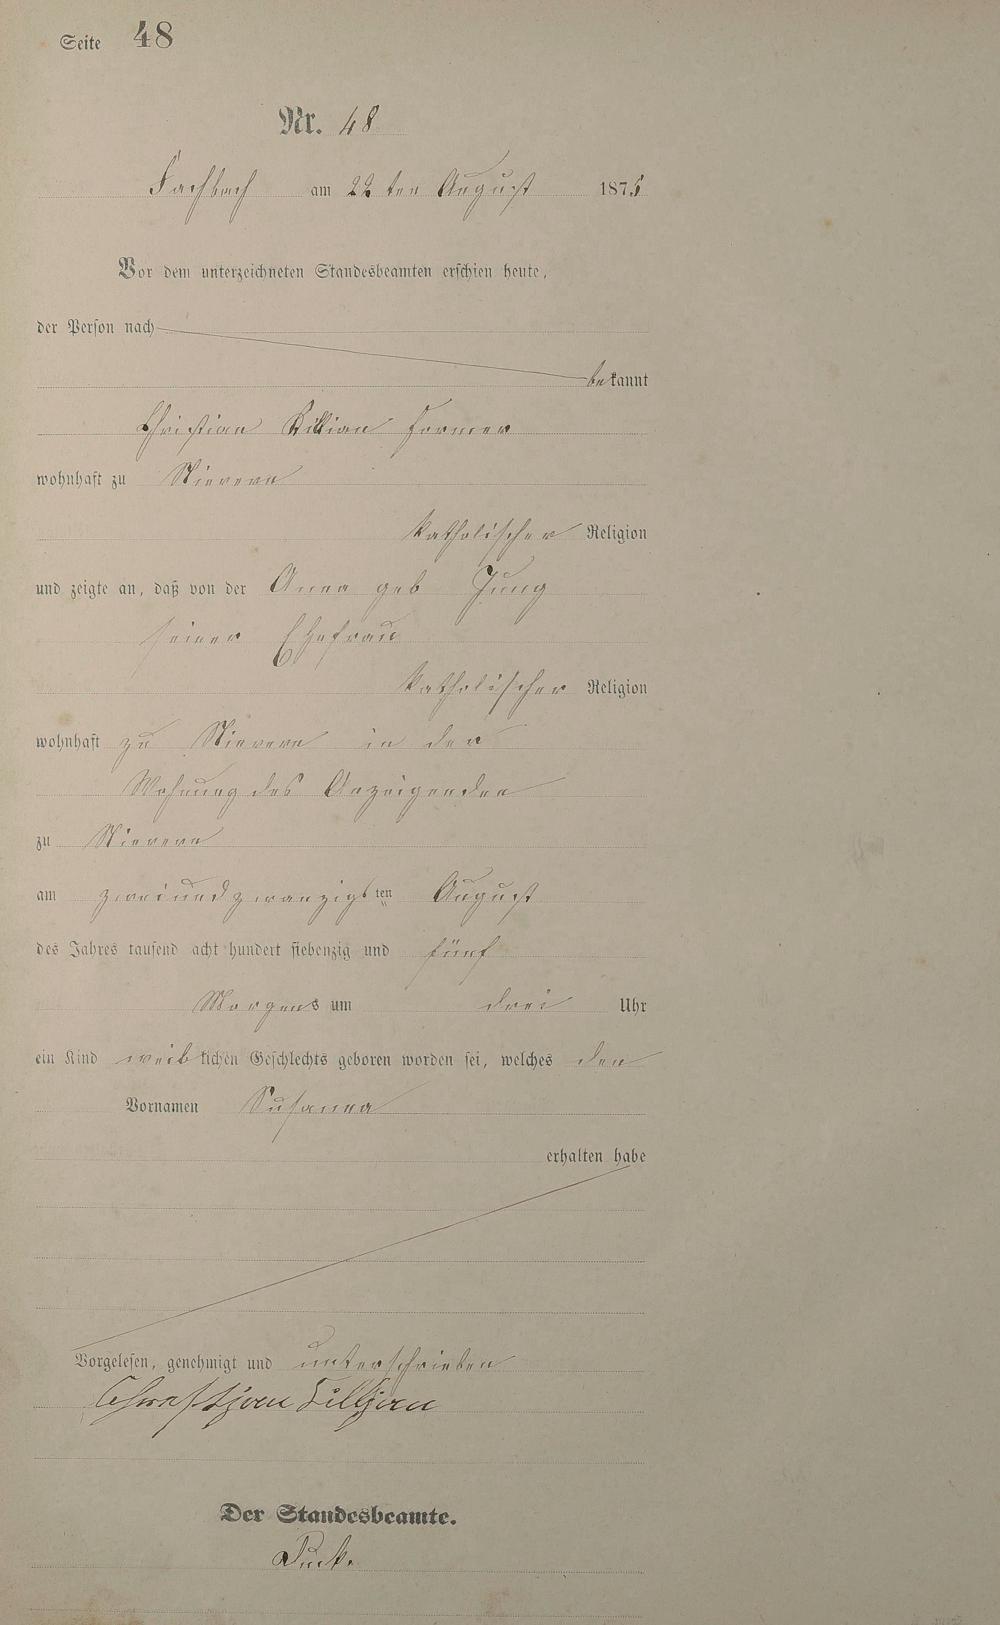 Seite 48
Nr. 48
Fachbach am 22 ten August 1875
Vor dem unterzeichneten Standesbeamten erschien heute,
der Person nach
bekannt
Christian Killian Former
wohnhaft zu Nievern
katholischer Religion
und zeigte an, daß von der Anna geb Jung
seiner Ehefrau
katholischer Religion
wohnhaft zu Nievern in der
Wohnung des Anzeigenden
zu Nievern
am zweiundzwanzigsten August
des Jahres tausend acht hundert siebenzig und fünf
Morgens um drei Uhr
ein Kind weiblichen Geschlechts geboren worden sei, welches den
Vornamen Susanna
erhalten habe
Vorgelesen, genehmigt und unterschrieben
Christian Killian
Der Standesbeamte.